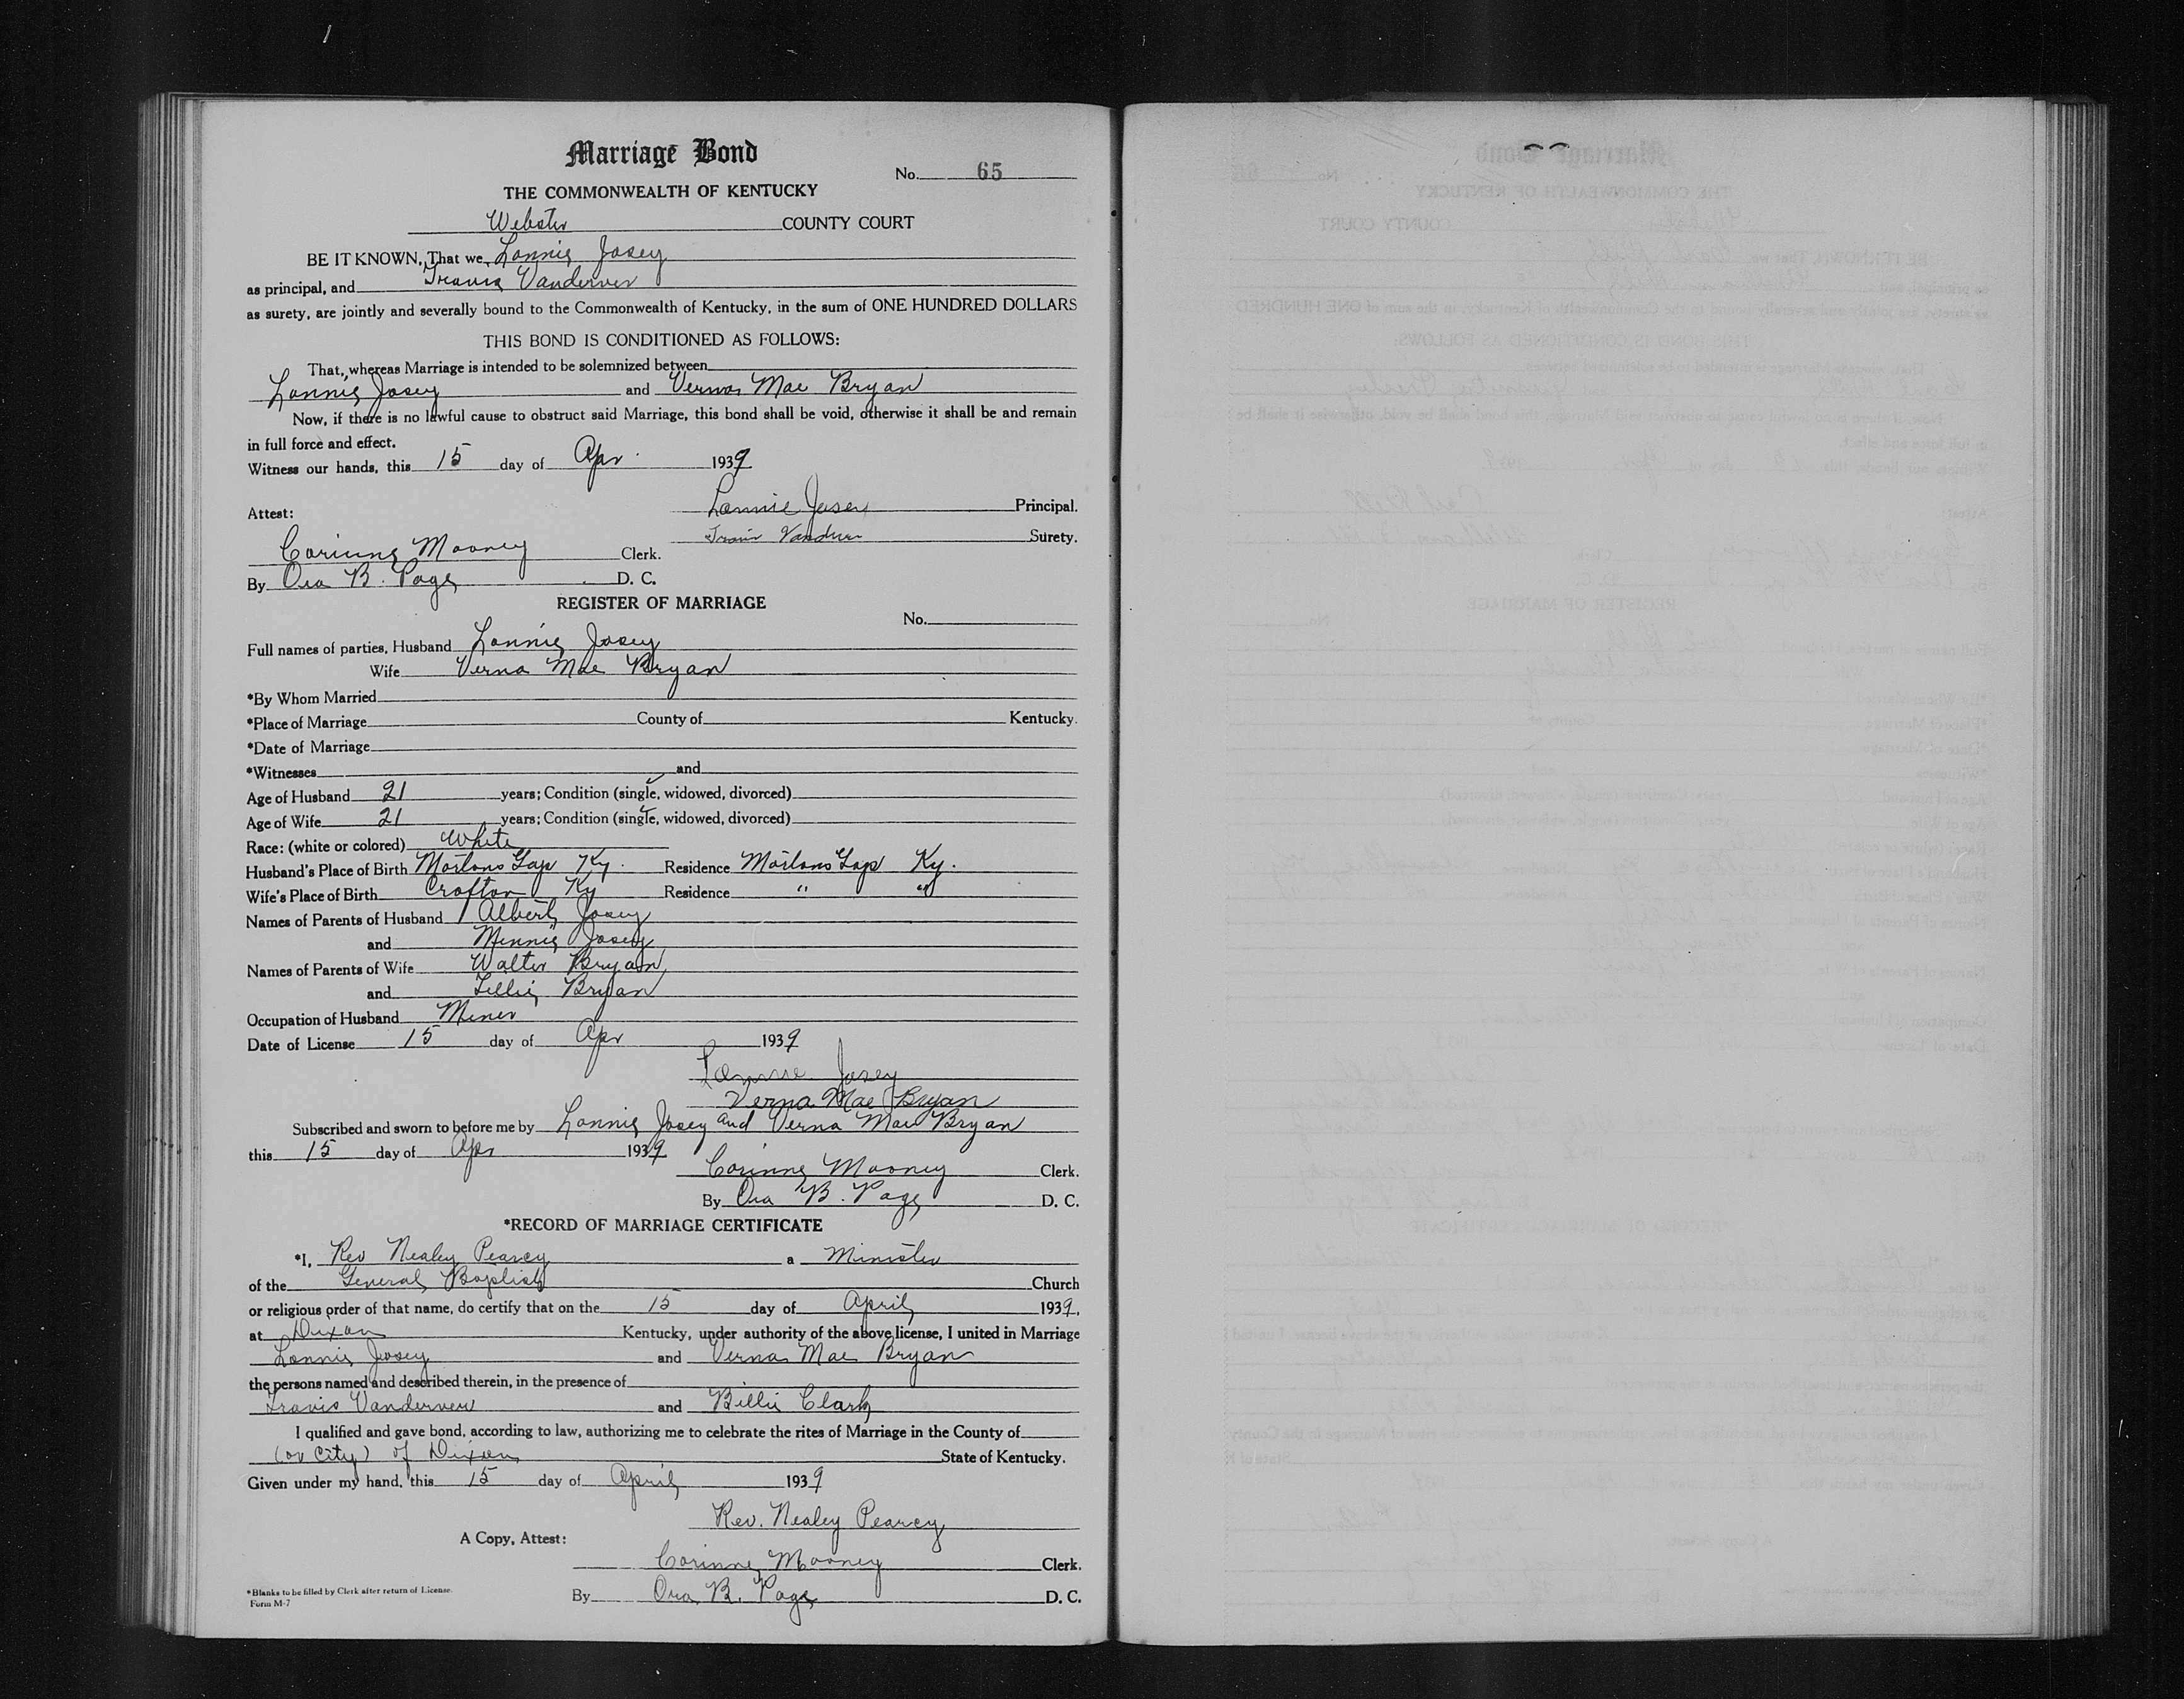 Marriage Bond
No. 65
THE COMMONWEALTH OF KENTUCKY
Webster COUNTY COURT
BE IT KNOWN, That we, Lonnie Josey
as principal, and Travis Vanderver
as surety, are jointly and severally bound to the Commonwealth of Kentucky, in the sum of ONE HUNDRED DOLLARS
THIS BOND IS CONDITIONED AS FOLLOWS:
That, whereas Marriage is intended to be solemnized between
Lonnie Josey and Verna Mae Bryan
Now, if there is no lawful cause to obstruct said Marriage, this bond shall be void, otherwise it shall be and remain
in full force and effect.
Witness our hands, this 15 day of Apr. 1939
Attest: Lonnie Josey Principal.
Travis Surety.
Corinne Mooney Clerk.
By Ora B. Page D. C.
REGISTER OF MARRIAGE
No.
Full names of parties, Husband Lonnie Josey
Wife Verna Mae Bryan
*By Whom Married
*Place of Marriage County of Kentucky.
*Date of Marriage
*Witnesses and
Age of Husband 21 years; Condition (single, widowed, divorced)
Age of Wife 21 years; Condition (single, widowed, divorced)
Race: (white or colored) White
Husband's Place of Birth Mortons Gap Ky. Residence Mortons Gap Ky.
Wife's Place of Birth Crofton Ky Residence " "
Names of Parents of Husband Albert Josey
and Minnie Josey
Names of Parents of Wife Walter Bryan
and Lillie Bryan
Occupation of Husband Miner
Date of License 15 day of Apr 1939
Lonnie Josey
Verna Mae Bryan
Subscribed and sworn to before me by Lonnie Josey and Verna Mae Bryan
this 15 day of Apr 1939
Corinne Mooney Clerk.
By Ora B. Page D. C.
*RECORD OF MARRIAGE CERTIFICATE
*I, Rev Nealey Pearcy a Minister
of the General Baptist Church
or religious order of that name, do certify that on the 15 day of April 1939,
at Dixon Kentucky, under authority of the above license, I united in Marriage
Lonnie Josey and Verna Mae Bryan
the persons named and described therein, in the presence of
Travis Vanderver and Billie Clark
I qualified and gave bond, according to law, authorizing me to celebrate the rites of Marriage in the County of
(or City) of Dixon State of Kentucky.
Given under my hand, this 15 day of April 1939
Rev. Nealey Pearcy
A Copy, Attest:
Corinne Mooney Clerk.
*Blanks to be filled by Clerk after return of License.
Form M-7
By Ora B. Page D. C.